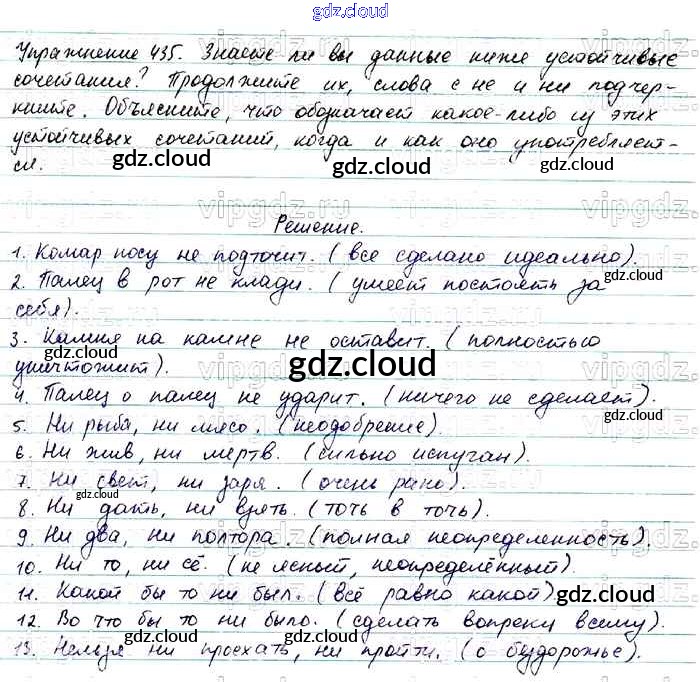 gdz.cloud
Упражнение 435. Знаете ли вы данные ниже устойчивые
сочетания? Продолжите их, слова с не и ни подчер-
кните. Объясните, что обозначает какое-либо из этих
устойчивых сочетаний, когда и как оно употребляет-
ся.
gdz.cloud gdz.cloud gdz.cloud
Решение.
1. Комар носу не подточит. (все сделано идеально).
gdz.cloud
2. Палец в рот не клади. (умеет постоять за
себя).
3. Камня на камне не оставит. (полностью
уничтожит).
gdz.cloud
4. Палец о палец не ударит. (ничего не сделает).
gdz.cloud
5. Ни рыба, ни мясо. (неодобрение).
6. Ни жив, ни мертв. (сильно испуган).
7. Ни свет, ни заря. (очень рано).
gdz.cloud
8. Ни дать, ни взять. (точь в точь).
gdz.cloud
9. Ни два, ни полтора. (полная неопределенность).
gdz.cloud
10. Ни то, ни сё. (не ясный, неопределённый).
11. Какой бы то ни был. (всё равно какой)
gdz.cloud
12. Во что бы то ни было. (сделать вопреки всему).
gdz.cloud
13. Нельзя ни проехать, ни пройти. (о бездорожье).
vipgdz.ru